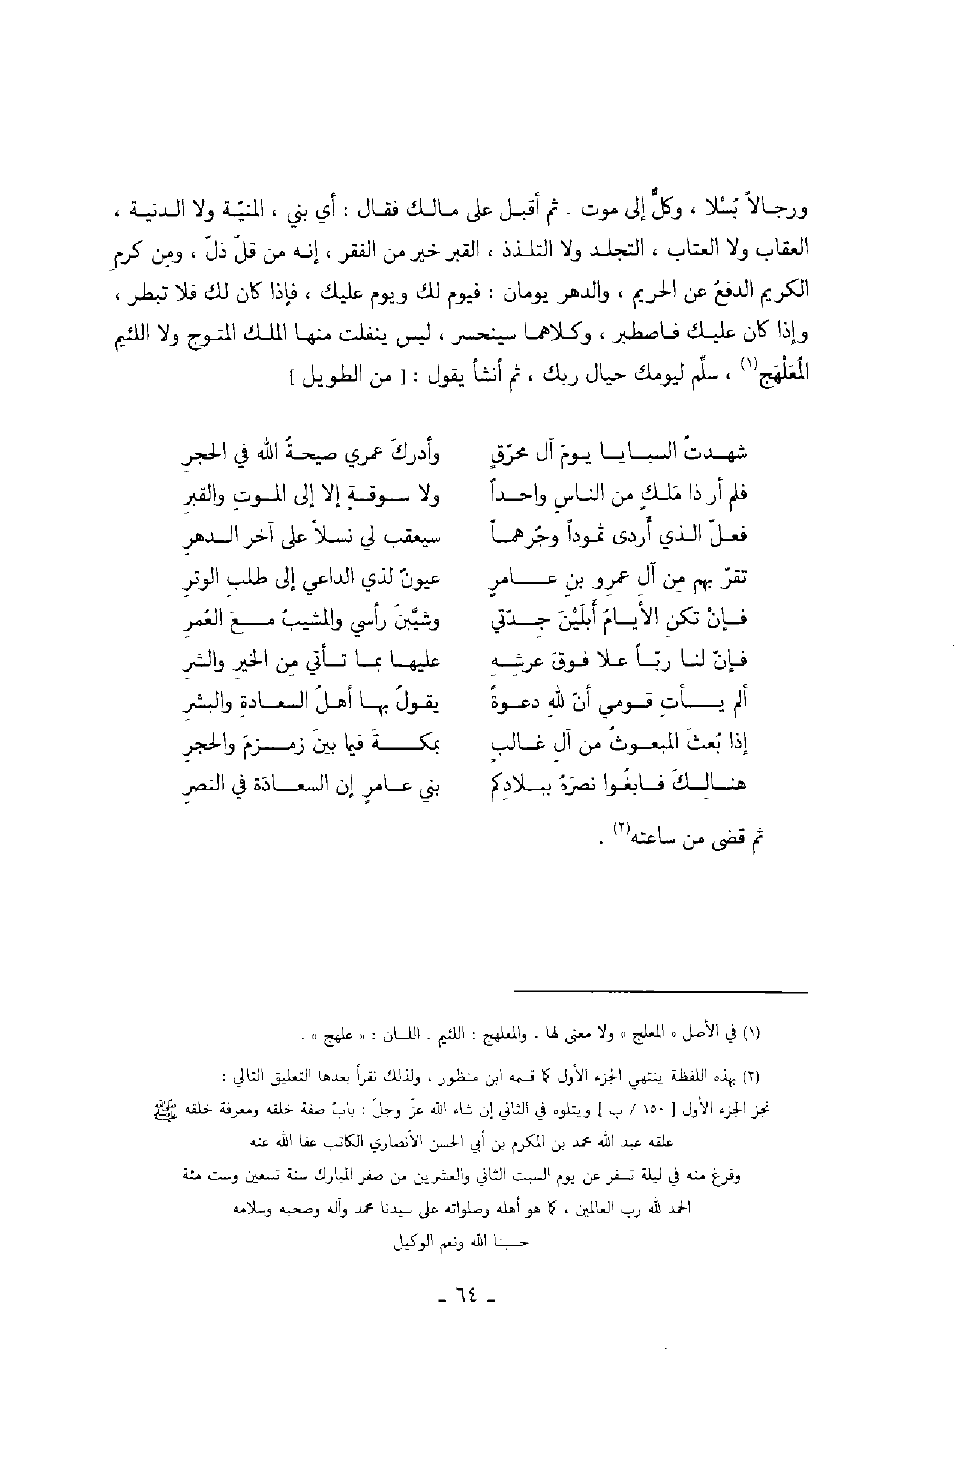 ورجالاً بُسُلا ، وكلٌّ إلى موت . ثم أقبل على مالك فقال : أي بني ، المنيّة ولا الدنية ،
العقاب ولا العتاب ، التجلد ولا التلذذ ، القبر خير من الفقر ، إنه من قلّ ذلّ ، ومن كرم
الكريم الدفعُ عن الحريم ، والدهر يومان : فيوم لك ويوم عليك ، فإذا كان لك فلا تبطر ،
وإذا كان عليك فاصطبر ، وكلاهما سينحسر ، ليس ينفلت منها الملك المتوج ولا اللئيم
المُعَلْهَج(١) ، سلّم ليومك حيال ربك ، ثم أنشأ يقول : [ من الطويل ]
شهدتُ السبايا يومَ آل محرّقٍ وأدركَ عمري صيحةُ الله في الحجرِ
فلم أر ذا مَلكٍ من الناسِ واحداً ولا سوقةٍ إلا إلى الموتِ والقبرِ
فعلّ الذي أردى ثموداً وجُرهماً سيعقب لي نسلاً على آخر الدهرِ
تقرّ بهم من آل عمرو بنِ عامرٍ عيونٌ لذي الداعي إلى طلبِ الوترِ
فإنْ تكنِ الأيامُ أبلَيْنَ جِدّتي وشيَّبنَ رأسي والمشيبُ مع العُمرِ
فإنّ لنا ربّاً علا فوقَ عرشِهِ عليماً بما تأتي من الخيرِ والشرِ
ألم يأتِ قومي أنّ للهِ دعوةً يقولُ بها أهلُ السعادةِ والبشرِ
إذا بُعثَ المبعوثُ من آل غالبٍ بمكةَ فيما بينَ زمزمَ والحجرِ
هنالكَ فابغُوا نصرَهُ ببلادِكم بني عامرٍ إن السعادَةَ في النصرِ
ثم قضى من ساعته(٢) .
(١) في الأصل « المعلج » ولا معنى لها . والمعلهج : اللئيم . اللسان : « علهج » .
(٢) بهذه اللفظة ينتهي الجزء الأول كما قسمه ابن منظور ، ولذلك نقرأ بعدها التعليق التالي :
نجز الجزء الأول [ ١٥٠ / ب ] ويتلوه في الثاني إن شاء الله عزّ وجلّ : بابُ صفة خلقه ومعرفة خلقه ﷺ
علقه عبد الله محمد بن المكرم بن أبي الحسن الأنصاري الكاتب عفا الله عنه
وفرغ منه في ليلة تسفر عن يوم السبت الثاني والعشرين من صفر المبارك سنة تسعين وست مئة
الحمد لله رب العالمين ، كما هو أهله وصلواته على سيدنا محمد وآله وصحبه وسلامه
حسبنا الله ونعم الوكيل
- ٦٤ -